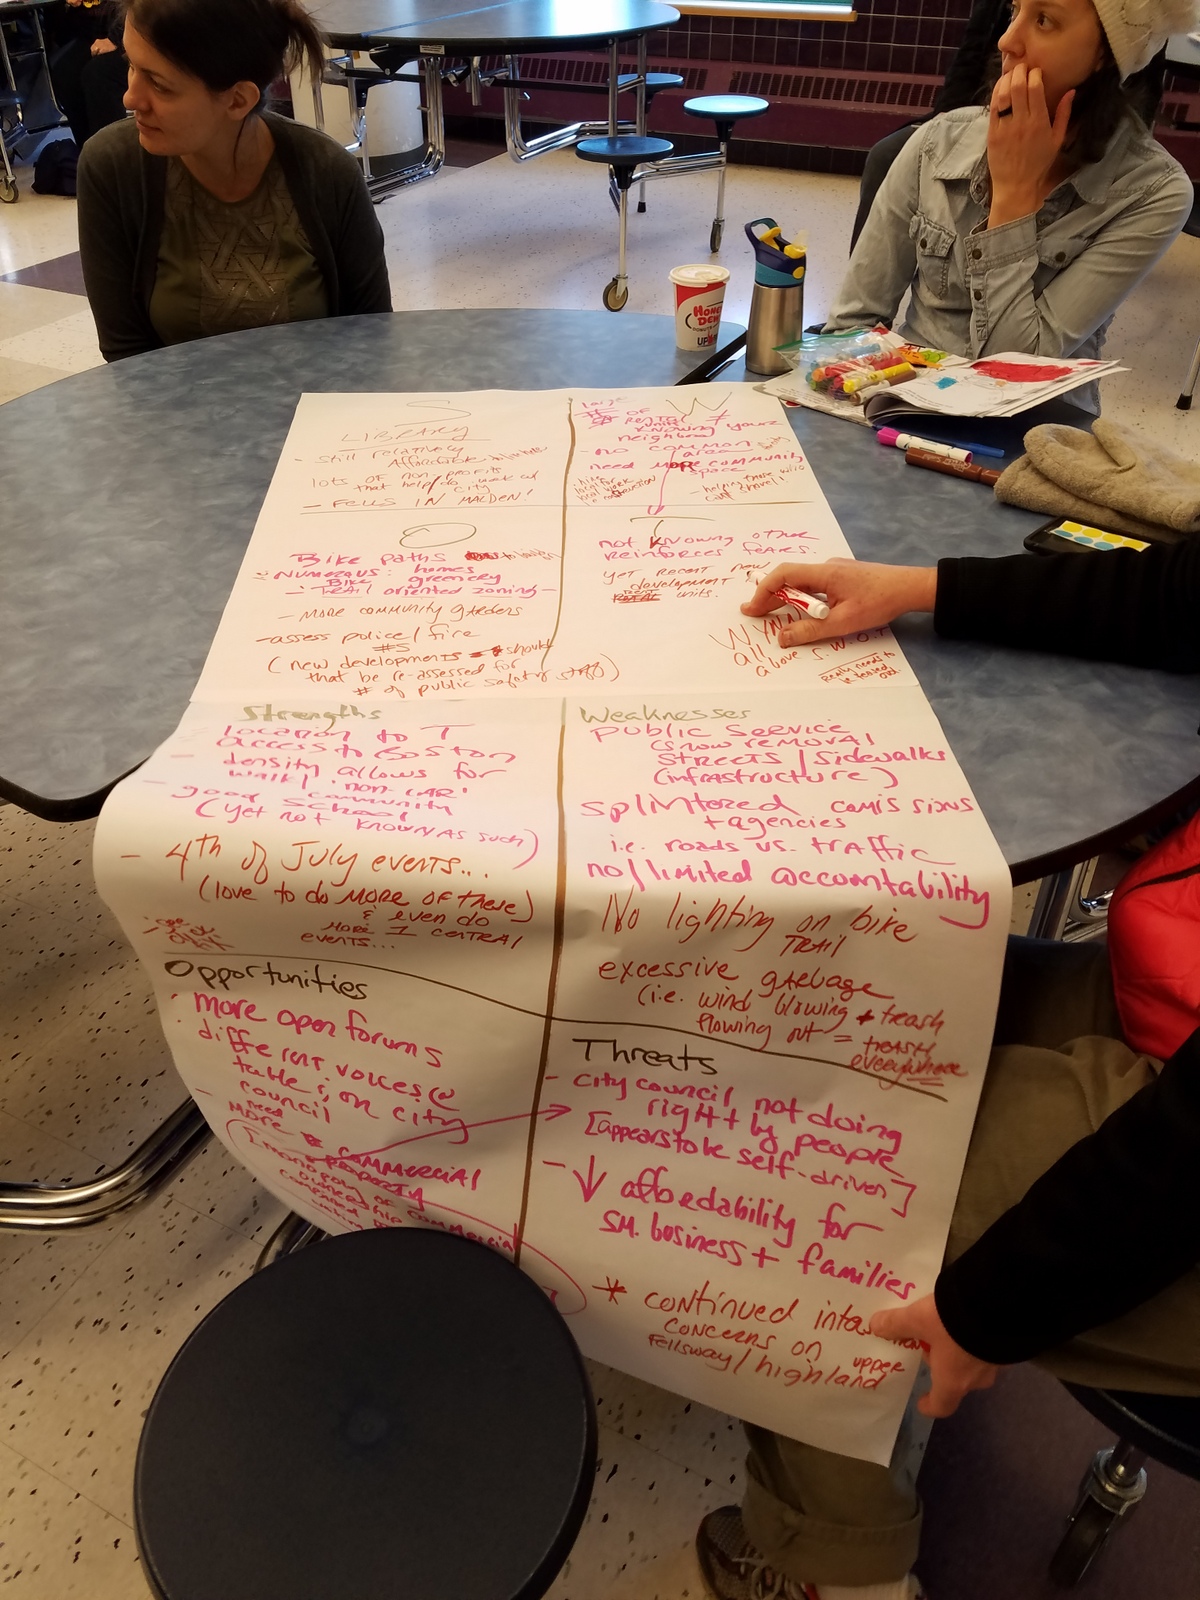 S
LIBRARY
- still relatively
Affordable
lots of non profits
that help
city
- FELLS IN MALDEN!
W
large
# of rental
units ≠
knowing your
neighbor
- no common
area
need more community
space
- helping those who
can't travel!
O
Bike paths
NUMEROUS: homes
Bike greenery
- TRAIL oriented zoning -
- MORE community gardens
- assess police/fire
#s
(new developments = should
that be re-assessed for
# of public safety staff)
T
not knowing other
reinforces fears.
yet recent new
development
units.
WYNN
all above S.W.O.T
really needs to
be teased
out.
Strengths
Location to T
access to Boston
- density allows for
walk/ non-CAR!
- good community
school
(yet not known as such)
- 4th of July events...
(love to do MORE of these)
& even do
MORE I CENTRAL
events...
Weaknesses
public service
(snow removal
streets/sidewalks
(infrastructure)
splintered comissions
+ agencies
i.e. roads vs. traffic
no/limited accountability
No lighting on bike
TRAIL
excessive garbage
(i.e. wind blowing + trash
flowing out = trash
everywhere
Opportunities
- more open forums
- different voices @
table i.e. on city
council
- need
more commercial
property
[monopoly of
ownership commercial
Threats
- city council not doing
right by people
[appears to be self-driven]
- ↓ affordability for
sm. business + families
* continued
concerns on upper
Fellsway/highland
HONEY
DEW
DONUTS